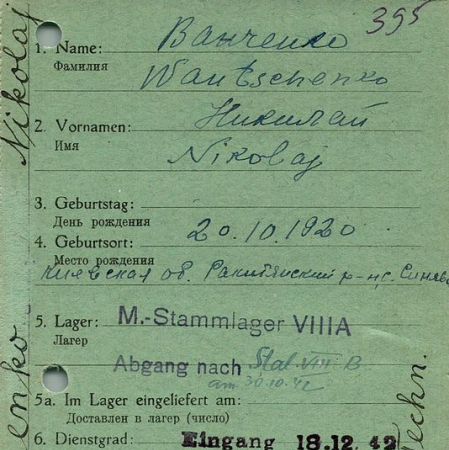 395
1. Name: Ванченко
Фамилия
Wantschenko
2. Vornamen: Николай
Имя
Nikolaj
3. Geburtstag:
День рождения
20.10.1920
4. Geburtsort:
Место рождения
Киевская об. Ракитянский р-н, с. Синяв
5. Lager: M.-Stammlager VIIIA
Лагер
Abgang nach Stal. VIII B
am 30.10.42
5a. Im Lager eingeliefert am:
Доставлен в лагер (число)
6. Dienstgrad: Eingang 18.12.42
Nikolaj
enko
echn.